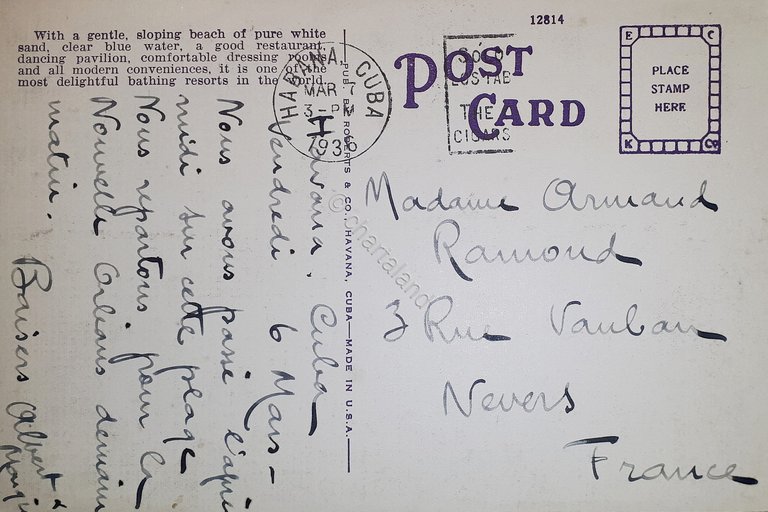 With a gentle, sloping beach of pure white
sand, clear blue water, a good restaurant,
dancing pavilion, comfortable dressing rooms
and all modern conveniences, it is one of the
most delightful bathing resorts in the world.
12814
POST
CARD
PLACE
STAMP
HERE
E C
K Co
HABANA, CUBA
MAR 7
3 - PM
193
THE
CIGARS
PUB. BY ROBERTS & CO., HAVANA, CUBA—MADE IN U.S.A.
© chartaland
Havana. Cuba
Vendredi 6 Mars -
Nous avons passé l'après
midi sur cette plage
Nous repartons pour la
Nouvelle Orléans demain
matin.
Baisers Albert &
Madame Armand
Ramond
3 Rue Vauban
Nevers
France